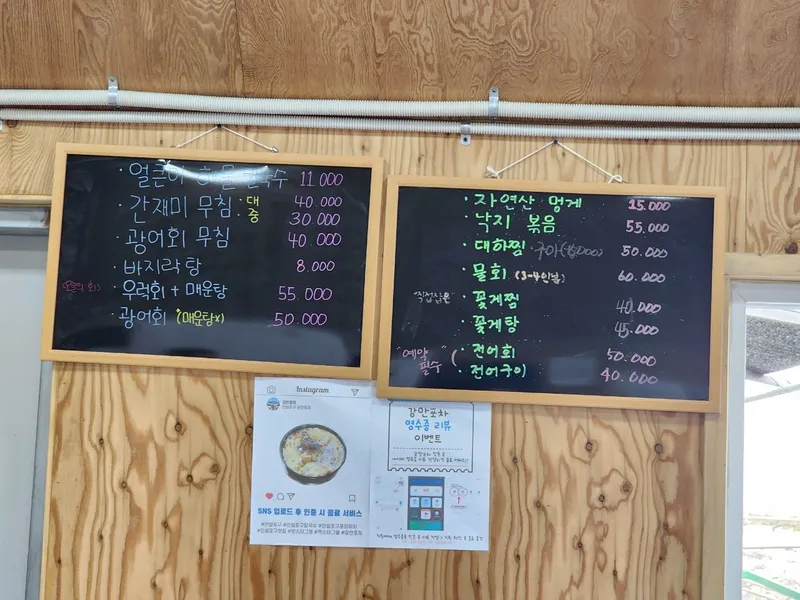 · 얼큰이 해물 칼국수 11.000
· 간재미 무침 · 대 40.000
중 30.000
· 광어회 무침 40.000
· 바지락 탕 8.000
(오늘의 회) · 우럭회 + 매운탕 55.000
· 광어회 (매운탕x) 50.000
· 자연산 멍게 15.000
· 낙지 볶음 55.000
· 대하찜 · 구이 50.000
· 물회 (3-4인분) 60.000
· 꽃게찜 40.000
· 꽃게탕 45.000
"예약 필수" ( · 전어회 50.000
· 전어구이 40.000
Instagram
SNS 업로드 후 인증 시 음료 서비스
강안포차
영수증 리뷰
이벤트